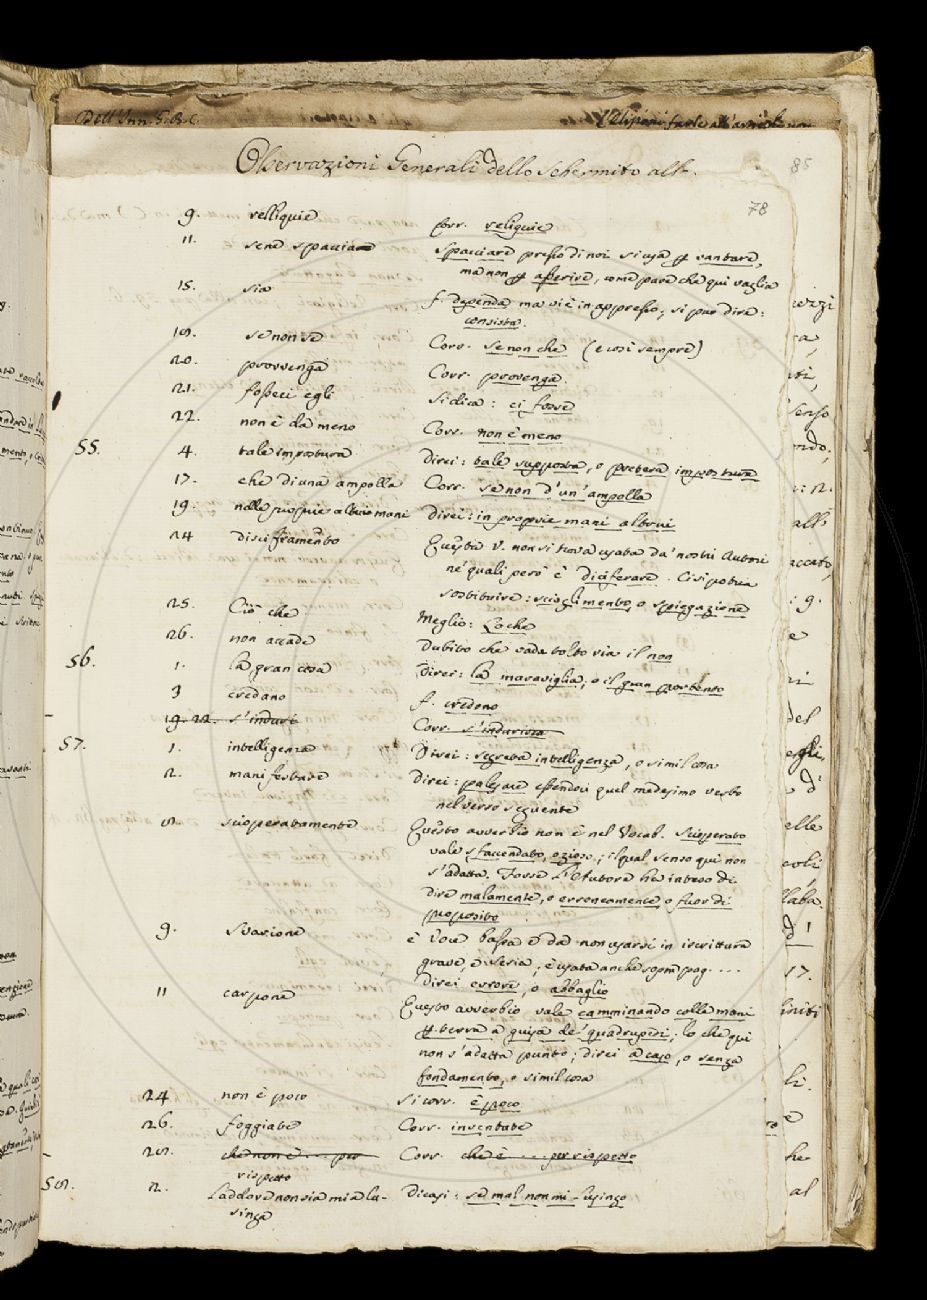 Dell'Inn. S. B. C.
Osservazioni Generali dello schermito alt.
85
78
9. relliquie Corr. reliquie
11. sene spacciare Spacciare presso di noi si usa per vantare,
ma non per asserire, come pare che qui vaglia
15. sia f. dependa ma v'è in appresso; si può dire:
consista.
19. se non se Corr. se non che (e così sempre)
20. provvenga Corr. provenga.
21. fosseci egli Si dica: ci fosse
22. non è da meno Corr. non è meno
55. 4. tale impostura Direi: tale supposta, o pretesa impostura
17. che di una ampolla Corr. se non d'un'ampolla
19. nelle proprie altrui mani Direi: in proprie mani altrui
24 disciframento Questa v. non si trova usata da' nostri Autori
ne' quali però è diciferare. Ci si potria
sostituire: scioglimento, o spiegazione
25. Ciò che Meglio: Lo che
26. non accade Dubito che vada tolto via il non
56. 1. la gran cosa Direi: la maraviglia, o il gran portento
3 credano f. credono
19. 22. s'induri Corr. s'indurisca
57. 1. intelligenza Direi: segreta intelligenza, o simil cosa
2. manifestare Direi: palesare essendovi quel medesimo verbo
nel verso seguente
5 scioperatamente Questo avverbio non è nel Vocab. Scioperato
vale sfaccendato, ozioso; il qual senso qui non
s'adatta. Forse l'Autore ha inteso di
dire malamente, o erroneamente, o fuor di
proposito
9. Svarione è voce bassa e da non usarsi in iscrittura
grave, e seria, è usata anche sopra pag. ....
Direi errore, o abbaglio
11 carpone Questo avverbio vale camminando colle mani
per terra a guisa de' quadrupedi; lo che qui
non s'adatta punto; direi a caso, o senza
fondamento, o simil cosa
24 non è poco Si corr. è poco
26. foggiate Corr. inventate
29. che non è ... per Corr. che è .... per rispetto
rispetto
59. 2. Laddove non sia mia lu- Dicasi: se mal non mi lusingo
singa